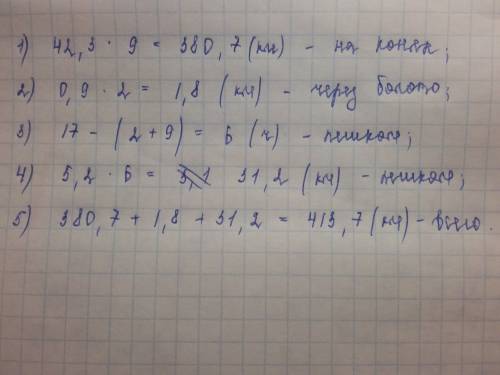 1) 42,3 · 9 = 380,7 (км) - на конях;
2) 0,9 · 2 = 1,8 (км) - через болото;
3) 17 - (2 + 9) = 6 (ч) - пешком;
4) 5,2 · 6 = 31,2 (км) - пешком;
5) 380,7 + 1,8 + 31,2 = 413,7 (км) - всего.